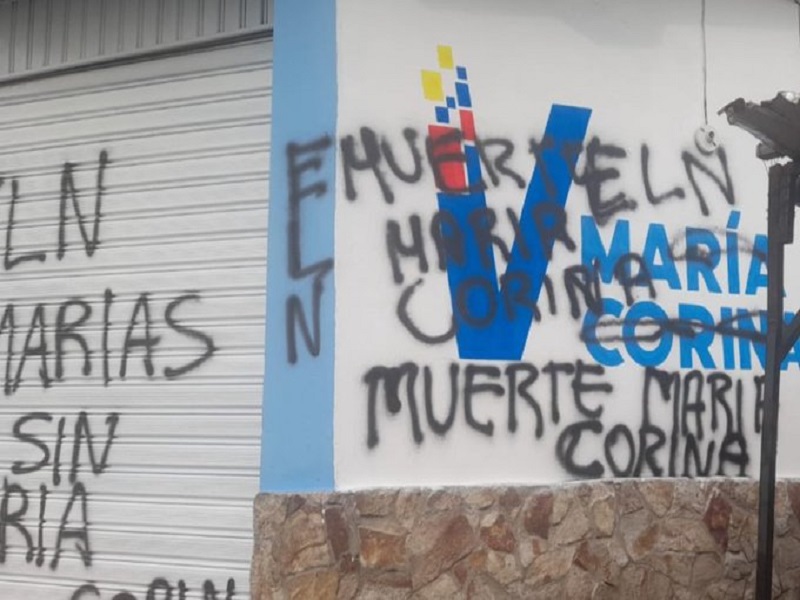 LN
MARIAS
SIN
RIA
CORIN
ELN
MUERTE
ELN
MARIA
CORINA
V
MARÍA
CORINA
MUERTE MARIA
CORINA